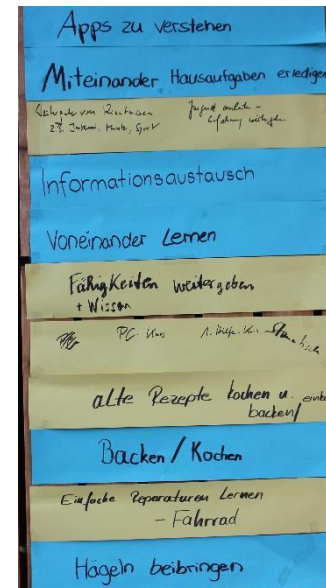 Apps zu verstehen
Miteinander Hausaufgaben erledigen
Weitergabe von Kenntnissen Jugend anleiten -
z.B. Instrum., Musik, Sport Erfahrung weitergeben
Informationsaustausch
Voneinander Lernen
Fähigkeiten weitergeben
+ Wissen
PC-Kurs 1. Hilfe-Kurs
alte Rezepte kochen u. einko
backen/
Backen / Kochen
Einfache Reparaturen Lernen
- Fahrrad
Hägeln beibringen